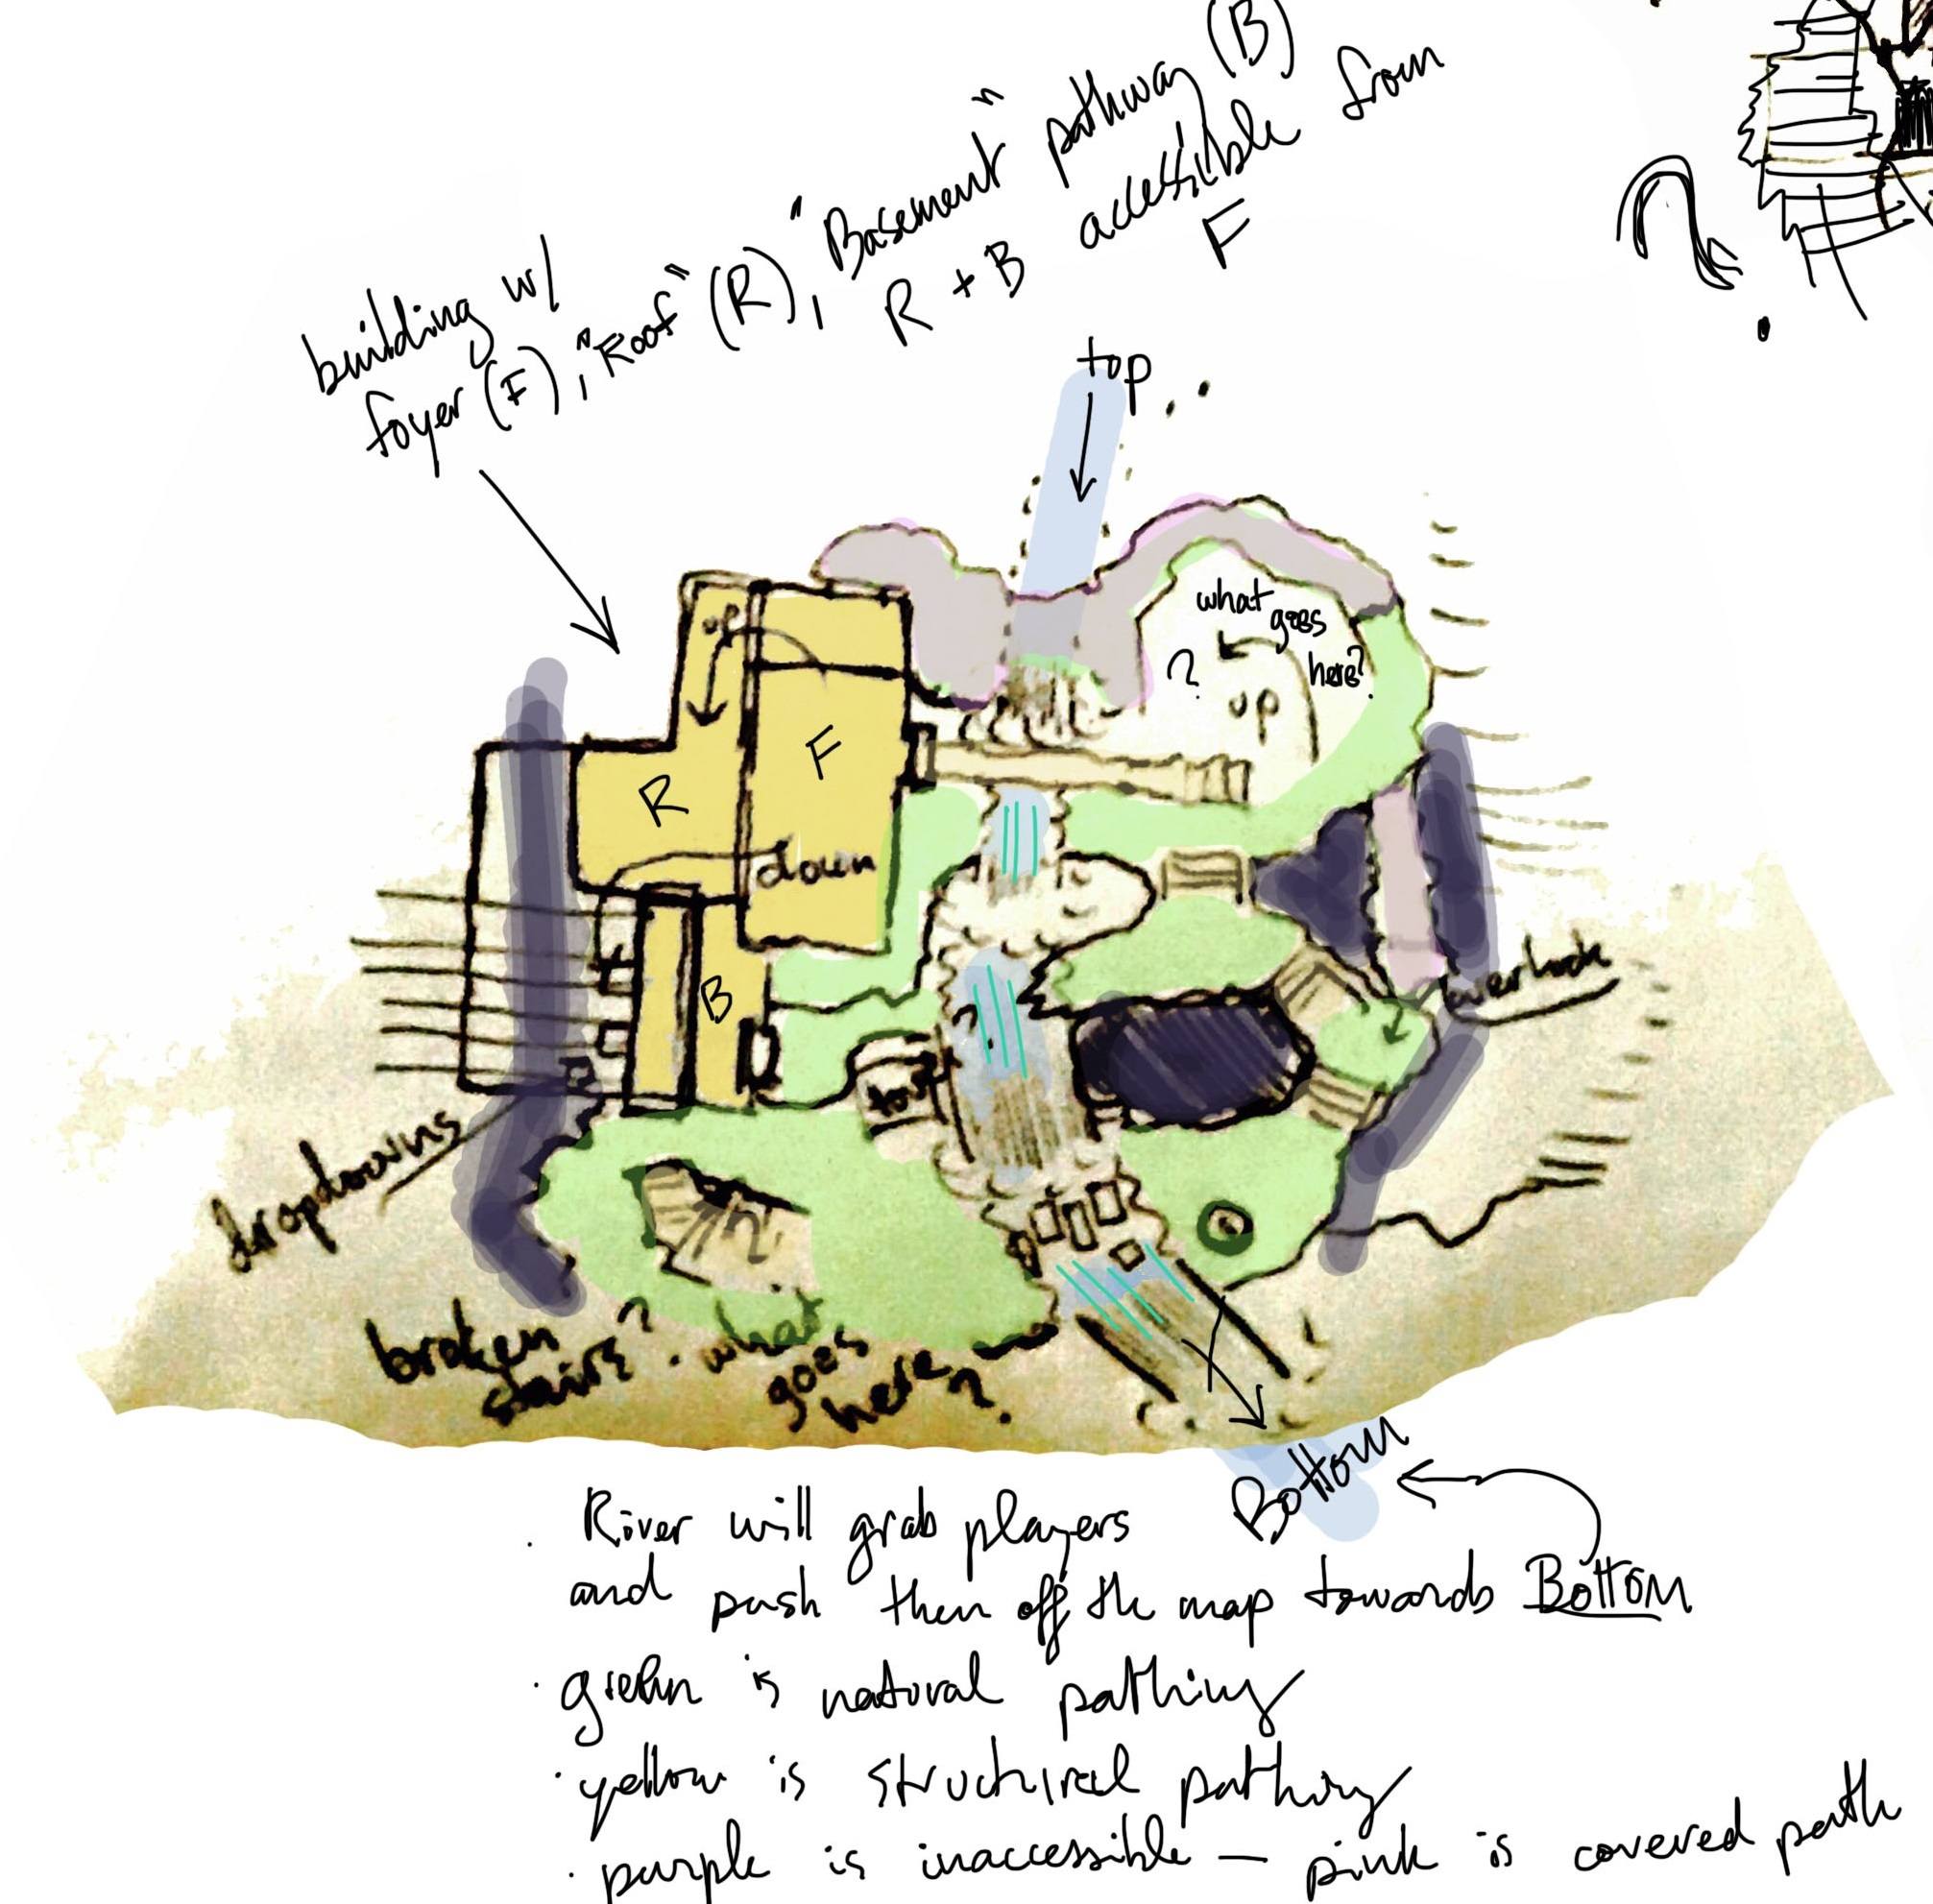 building w/
foyer (F), "Roof" (R), "Basement" pathway (B)
R + B accessible from
F
top
what
goes
here?
?
up
up
F
R
down
B
overlook
dropdowns
broken
stairs? what
goes
here?
Bottom
. River will grab players
and push them off the map towards Bottom
. green is natural pathing
. yellow is structural pathing
. purple is inaccessible — pink is covered path